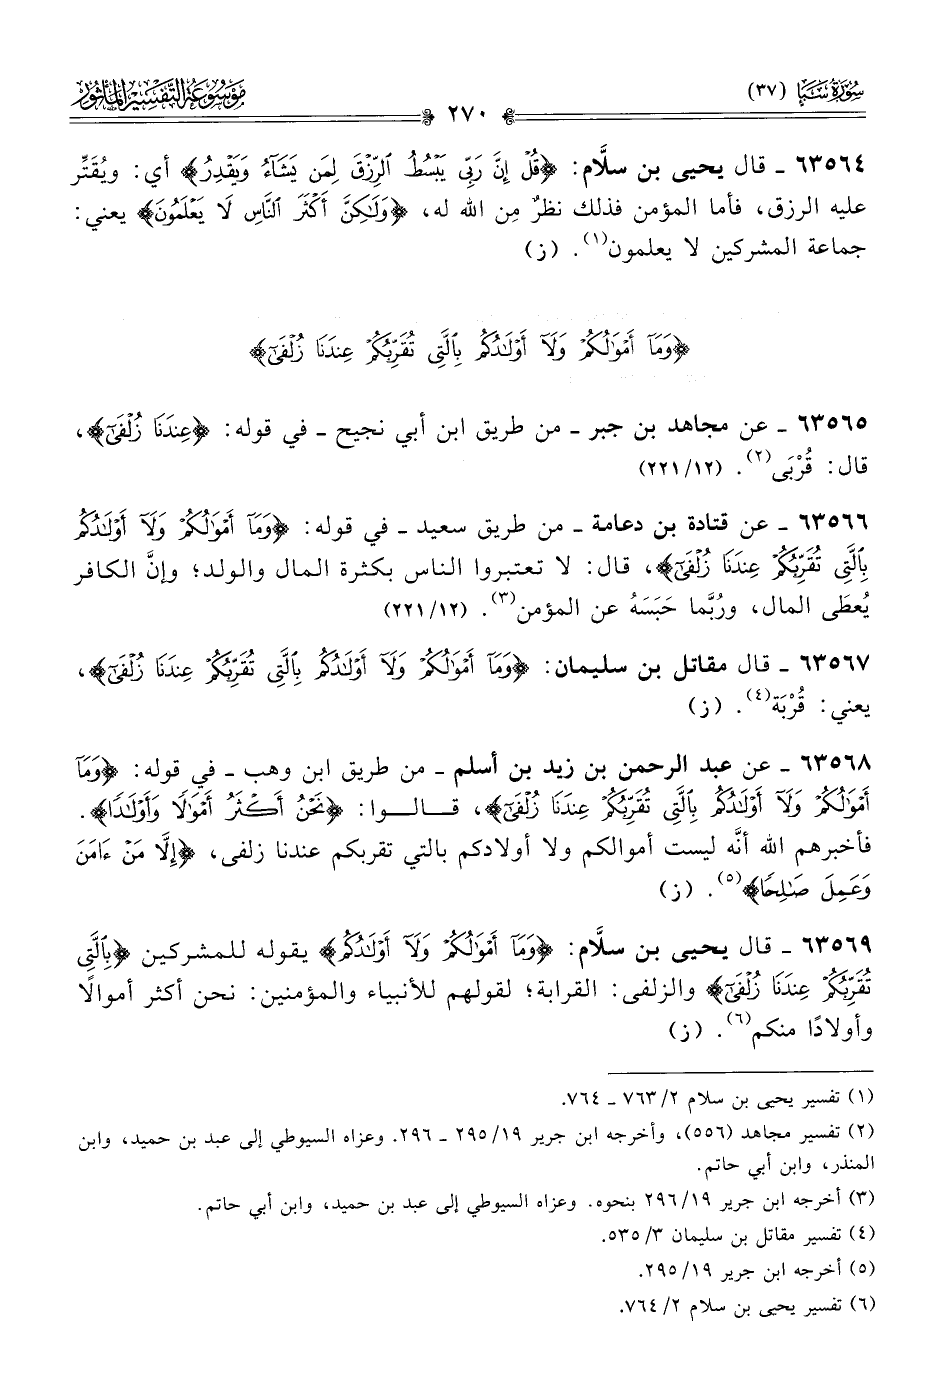 سُورَةُ سَبَإ (٣٧)
٢٧٠
مَوْسُوعَة التَّفْسِيرِ المَأْثُور
٦٣٥٦٤ ـ قال يحيى بن سلَّام: ﴿قُلْ إِنَّ رَبِّي يَبْسُطُ ٱلرِّزْقَ لِمَن يَشَآءُ وَيَقْدِرُ﴾ أي: ويُقَتِّر
عليه الرزق، فأما المؤمن فذلك نظرٌ مِن الله له، ﴿وَلَٰكِنَّ أَكْثَرَ ٱلنَّاسِ لَا يَعْلَمُونَ﴾ يعني:
جماعة المشركين لا يعلمون(١). (ز)
﴿وَمَآ أَمْوَٰلُكُمْ وَلَآ أَوْلَٰدُكُم بِٱلَّتِي تُقَرِّبُكُمْ عِندَنَا زُلْفَىٰٓ﴾
٦٣٥٦٥ ـ عن مجاهد بن جبر ـ من طريق ابن أبي نجيح ـ في قوله: ﴿عِندَنَا زُلْفَىٰٓ﴾،
قال: قُرْبَى(٢). (٢٢١/١٢)
٦٣٥٦٦ ـ عن قتادة بن دعامة ـ من طريق سعيد ـ في قوله: ﴿وَمَآ أَمْوَٰلُكُمْ وَلَآ أَوْلَٰدُكُم
بِٱلَّتِي تُقَرِّبُكُمْ عِندَنَا زُلْفَىٰٓ﴾، قال: لا تعتبروا الناس بكثرة المال والولد؛ وإنَّ الكافر
يُعطَى المال، ورُبَّما حَبَسَهُ عن المؤمن(٣). (٢٢١/١٢)
٦٣٥٦٧ ـ قال مقاتل بن سليمان: ﴿وَمَآ أَمْوَٰلُكُمْ وَلَآ أَوْلَٰدُكُم بِٱلَّتِي تُقَرِّبُكُمْ عِندَنَا زُلْفَىٰٓ﴾،
يعني: قُرْبَة(٤). (ز)
٦٣٥٦٨ ـ عن عبد الرحمن بن زيد بن أسلم ـ من طريق ابن وهب ـ في قوله: ﴿وَمَآ
أَمْوَٰلُكُمْ وَلَآ أَوْلَٰدُكُم بِٱلَّتِي تُقَرِّبُكُمْ عِندَنَا زُلْفَىٰٓ﴾، قـــالـــوا: ﴿نَحْنُ أَكْثَرُ أَمْوَٰلًا وَأَوْلَٰدًا﴾.
فأخبرهم الله أنَّه ليست أموالكم ولا أولادكم بالتي تقربكم عندنا زلفى، ﴿إِلَّا مَنْ ءَامَنَ
وَعَمِلَ صَٰلِحًا﴾(٥). (ز)
٦٣٥٦٩ ـ قال يحيى بن سلَّام: ﴿وَمَآ أَمْوَٰلُكُمْ وَلَآ أَوْلَٰدُكُم﴾ يقوله للمشركين ﴿بِٱلَّتِي
تُقَرِّبُكُمْ عِندَنَا زُلْفَىٰٓ﴾ والزلفى: القرابة؛ لقولهم للأنبياء والمؤمنين: نحن أكثر أموالًا
وأولادًا منكم(٦). (ز)
(١) تفسير يحيى بن سلام ٢/ ٧٦٣ ـ ٧٦٤.
(٢) تفسير مجاهد (٥٥٦)، وأخرجه ابن جرير ١٩/ ٢٩٥ ـ ٢٩٦. وعزاه السيوطي إلى عبد بن حميد، وابن
المنذر، وابن أبي حاتم.
(٣) أخرجه ابن جرير ١٩/ ٢٩٦ بنحوه. وعزاه السيوطي إلى عبد بن حميد، وابن أبي حاتم.
(٤) تفسير مقاتل بن سليمان ٣/ ٥٣٥.
(٥) أخرجه ابن جرير ١٩/ ٢٩٥.
(٦) تفسير يحيى بن سلام ٢/ ٧٦٤.